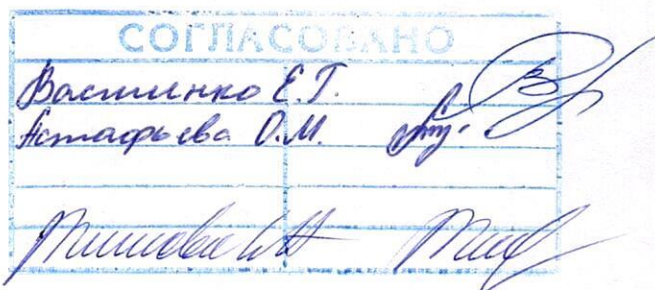 СОГЛАСОВАНО
Василенко Е.Г.
Астафьева О.М.